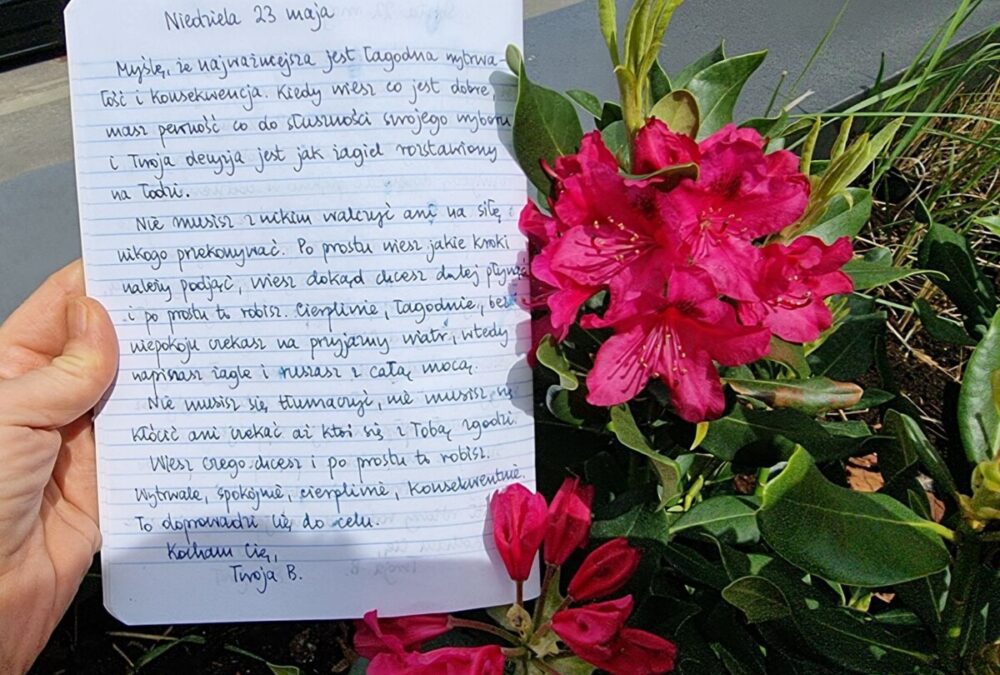 Niedziela 23 maja
Myślę, że najważniejsza jest łagodna wytrwa-
łość i konsekwencja. Kiedy wiesz co jest dobre,
masz pewność co do słuszności swojego wyboru
i Twoja decyzja jest jak żagiel rozstawiony
na łodzi.
Nie musisz z nikim walczyć ani na siłę
nikogo przekonywać. Po prostu wiesz jakie kroki
należy podjąć, wiesz dokąd chcesz dalej płynąć
i po prostu to robisz. Cierpliwie, łagodnie, bez
niepokoju czekasz na przyjazny wiatr, wtedy
napinasz żagle i ruszasz z całą mocą.
Nie musisz się tłumaczyć, nie musisz się
kłócić ani czekać aż ktoś się z Tobą zgodzi.
Wiesz czego chcesz i po prostu to robisz.
Wytrwale, spokojnie, cierpliwie, konsekwentnie.
To doprowadzi Cię do celu.
Kocham Cię,
Twoja B.